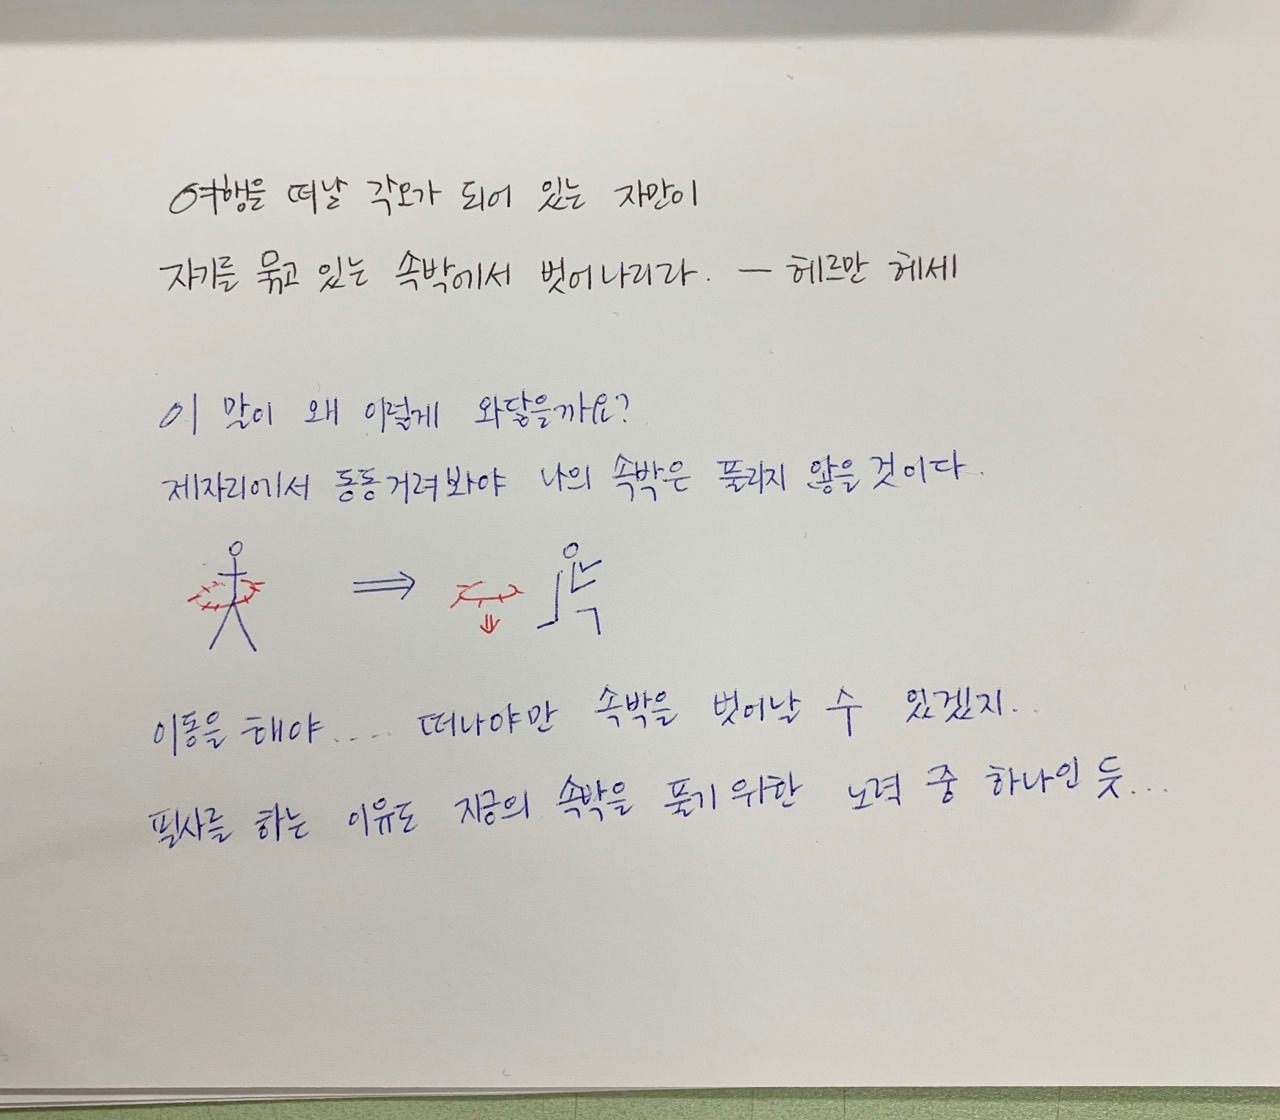 여행을 떠날 각오가 되어 있는 자만이
자기를 묶고 있는 속박에서 벗어나리라. - 헤르만 헤세
이 말이 왜 이렇게 와닿을까요?
제자리에서 동동거려봐야 나의 속박은 풀리지 않을것이다..
이동을 해야.... 떠나야만 속박을 벗어날 수 있겠지..
필사를 하는 이유도 지금의 속박을 풀기위한 노력 중 하나인 듯...